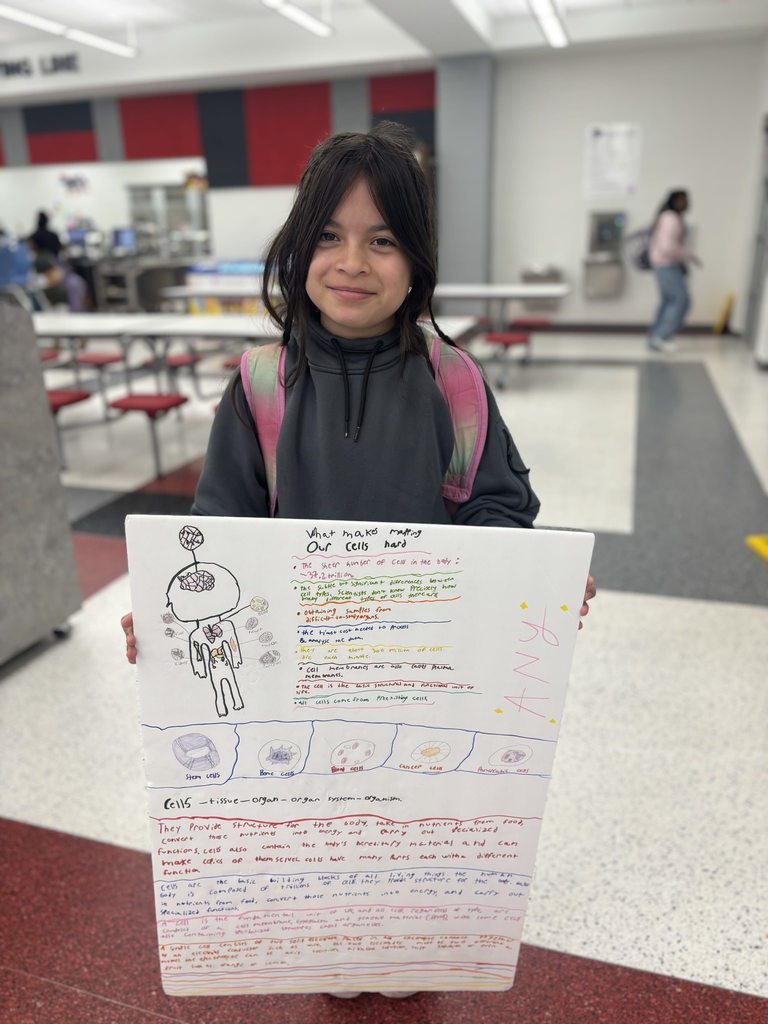 TING LINE
What makes mapping
Our cells hard
• The sheer number of cell in the body :
~37.2 trillion.
• The subtle but significant differences between
cell types. Scientists don't know precisely how
many different types of cells there are
• Obtaining samples from
difficult-to-study organs.
• the time & cost needed to process
& analyse the data.
• They are about 300 million of cells
die each minute.
• Cell membranes are also called plasma
membranes.
• The cell is the basic structural and functional unit of
life.
• All cells come from Preexisting cells
ANY
Stem cells
Bone cells
Blood cells
Cancer cells
Pancreatic cells
Cells - tissue - organ - organ system - organism.
They Provide structure for the body, take in nutrients from food,
convert those nutrients into energy and carry out specialized
functions. cells also contain the body's hereditary material and can
make copies of themselves cells have many Parts each with a different
function
Cells are the basic building blocks of all living things the human
body is composed of trillions of cells they Provide structure for the body, take
in nutrients from food, convert those nutrients into energy and carry out
specialized functions.
A cell is the fundamental unit of life and all cell regardless of type are
also containing specialized structures called organelles.
fruit such as orange or lemon.